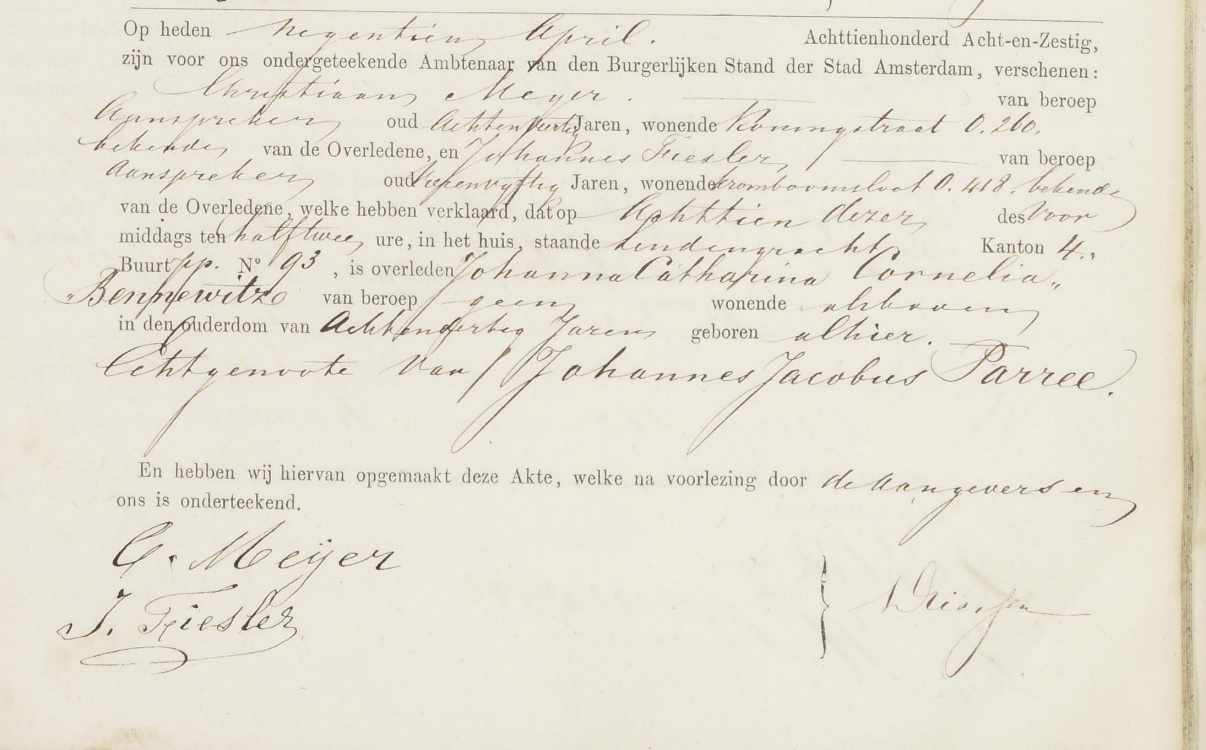 Op heden Negentien April. Achttienhonderd Acht-en-Zestig,
zijn voor ons ondergeteekende Ambtenaar van den Burgerlijken Stand der Stad Amsterdam, verschenen:
Christiaan Meyer. van beroep
Aanspreker oud Achtenveertig Jaren, wonende Koningstraat O. 260.
bekende van de Overledene, en Johannes Fiesler, van beroep
Aanspreker oud Jaren, wonende Kromboomsloot O. 418. bekende
van de Overledene, welke hebben verklaard, dat op Achttien dezer des Voor
middags ten half twee ure, in het huis, staande Lindengracht Kanton 4.
Buurt pp. No 93, is overleden Johanna Catharina Cornelia
Bennewitz van beroep geen wonende alsboven
in den ouderdom van Jaren geboren alhier.
Echtgenoote van Johannes Jacobus Parree.
En hebben wij hiervan opgemaakt deze Akte, welke na voorlezing door de aangevers en
ons is onderteekend.
C. Meijer
J. Fiesler